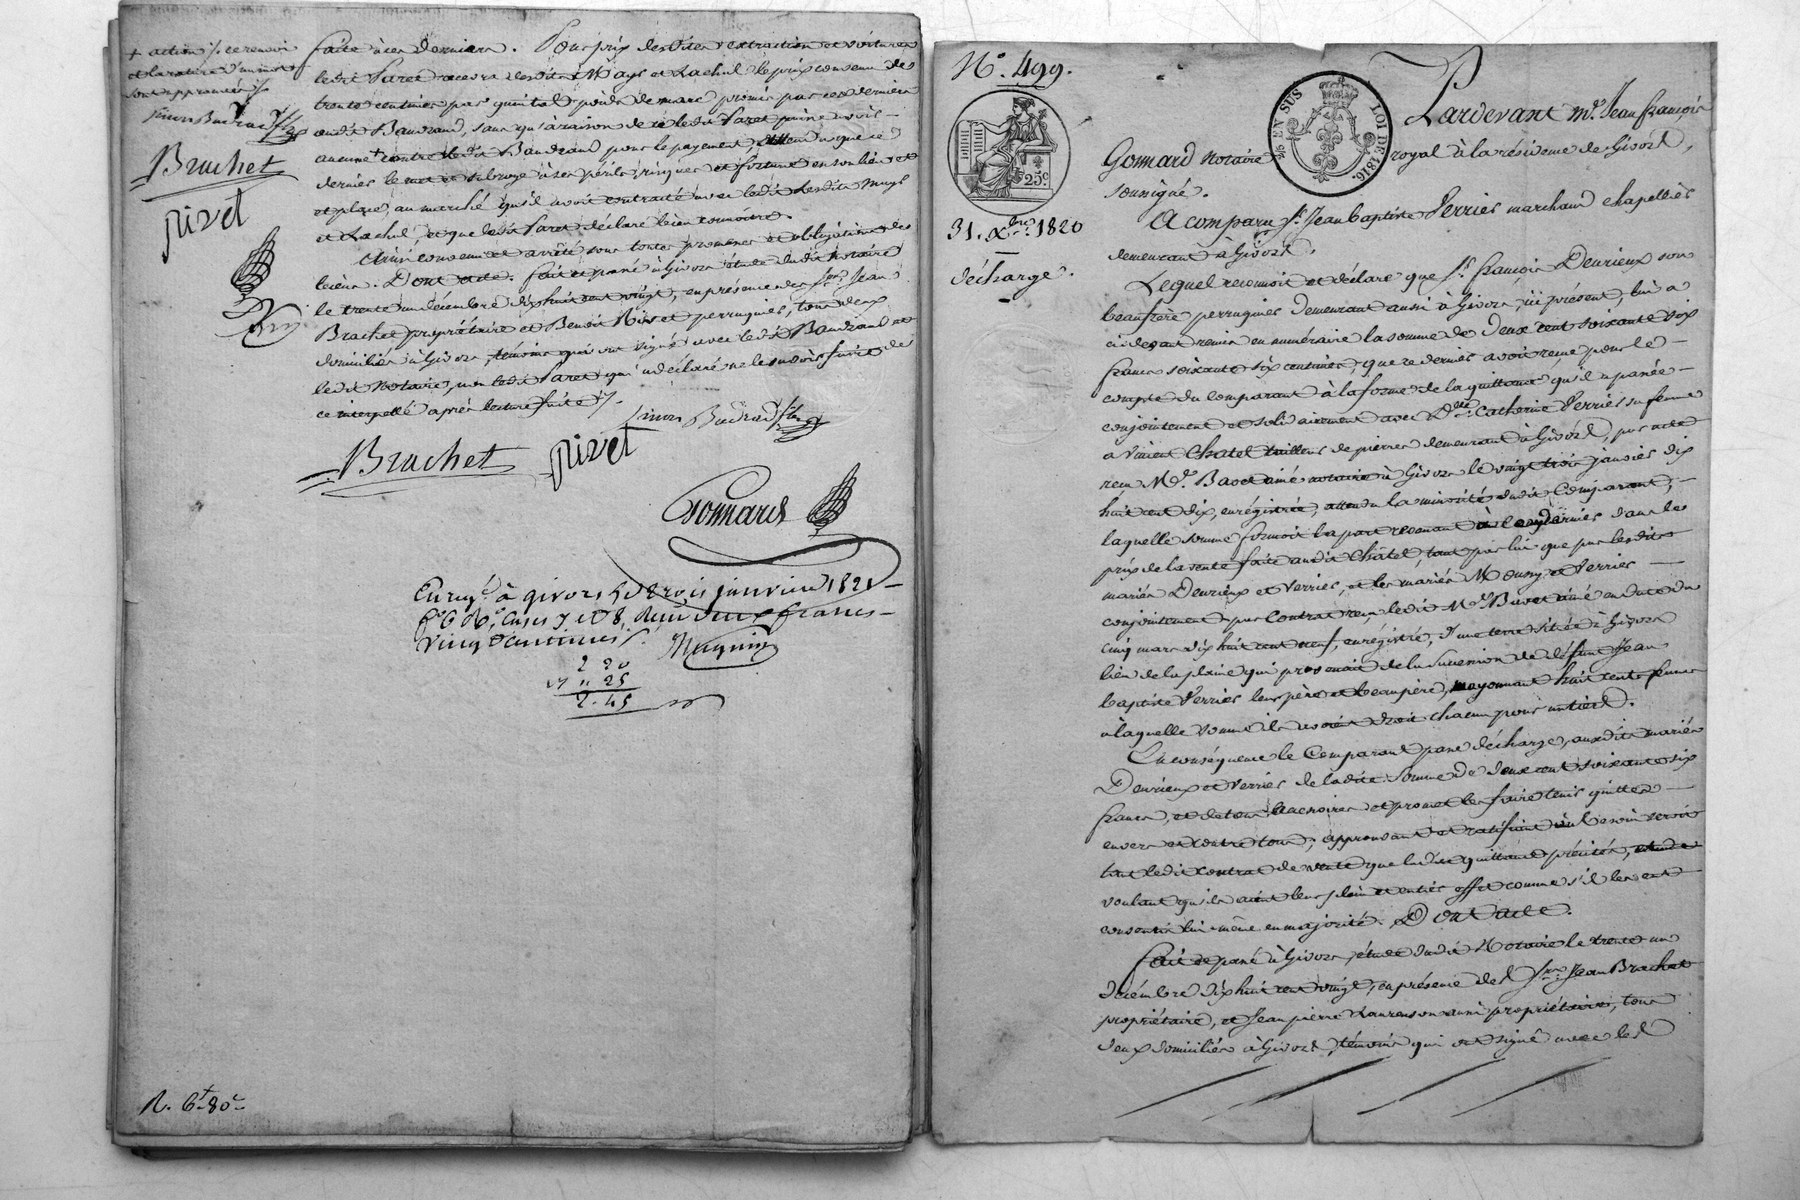 + action /. ce renvoi
et la rature d'un mot
sont approuvés /.
Simon Baudrand fils
Brachet
Rivet
faite à ces derniers. Pour prix desdites extraction et voitures
ledit Paret recevra desdits Mays et Lachal le prix convenu de
trente centimes par quintal poids de marc promis par ces derniers
audit Baudrand, sans qu'à raison de ce ledit Paret puisse avoir
aucune + contre ledit Baudrand pour le payement, attendu que ce
dernier le met et subroge à ses périls, risques et fortune en son lieu et
et place, au marché qu'il avoit contracté avec lesdits Mays
et Lachal, et que ledit Paret déclare bien connoitre.
Ainsi convenu et arrêté sous toutes promesses et obligations des
biens. Dont acte. fait et passé à Givors étude dudit notaire
le trente un décembre dix huit cent vingt, en présence des Srs. Jean
Brachet propriétaire et Benoit Rivet perruquier, tous deux
domiciliés à Givors, témoins qui ont signé avec ledit Baudrand et
ledit Notaire, non ledit Paret qui a déclaré ne le savoir faire de
ce interpellé après lecture faite /.
Simon Baudrand fils
Brachet
Rivet
Gomard
Enregé. à givors le trois janvier 1821
fo. 6 Ro. Cases 7 et 8, Reçu deux francs
vingt centimes.
Magnin
2 20
" 25
2.45
R. 6f 80c
No. 499.
25c
31. Xbre. 1820
décharge.
¼ EN SUS
LOI DE 1816.
Pardevant Me. Jean François
Gomard notaire royal à la résidence de Givors,
soussigné.
A comparu Sr. Jean Baptiste Verrier marchand chapellier
demeurant à Givors.
Lequel reconnoit et déclare que Sr. François Devrieux son
beaufrère perruquier demeurant aussi à Givors, ici présent, lui a
ci devant remis en numéraire la somme de deux cent soixante six
francs soixante six centimes, que ce dernier avoit reçue pour le
compte du comparant à la forme de la quittance qu'il a passée
conjointement et solidairement avec Dlle. Catherine Verrier sa femme
à Vincent Chatel tailleur de pierres demeurant à Givors, par acte
reçu Me. Bavet ainé notaire à Givors le vingt trois janvier dix
huit cent dix, enregistrée, attendu la minorité dudit Comparant,
laquelle somme formoit la part revenant à ce dernier dans le
prix de la vente faite audit Châtel, tant par lui que par lesdits
mariés Devrieux et Verrier, et les mariés Mouny et Verrier
conjointement par contrat reçu ledit Me. Bavet ainé en date du
cinq mars dix huit cent neuf, enregistré, d'une terre située à Givors
lieu de la plaine qui provenoit de la succession de défunt Jean
baptiste Verrier leur père et beaupère, moyennant huit cents francs
à laquelle somme ils avoient droit chacun pour un tiers.
En conséquence le Comparant passe décharge, auxdits mariés
Devrieux et Verrier de ladite somme de deux cent soixante six
francs, et de tous accessoires et promet les faire tenir quittes
envers et contre tous; approuvant et ratifiant si besoin seroit
tant ledit contrat de vente que ladite quittance précités,
voulant qu'ils aient leur plein et entier effet comme s'il les eut
consentis lui-même en majorité. Dont acte.
Fait et passé à Givors, étude dudit Notaire le trente un
décembre dix huit cent vingt, en présence des Srs. Jean Brachet
propriétaire, et Jean pierre Laurenson aussi propriétaire, tous
deux domiciliés à Givors, témoins qui ont signé avec led